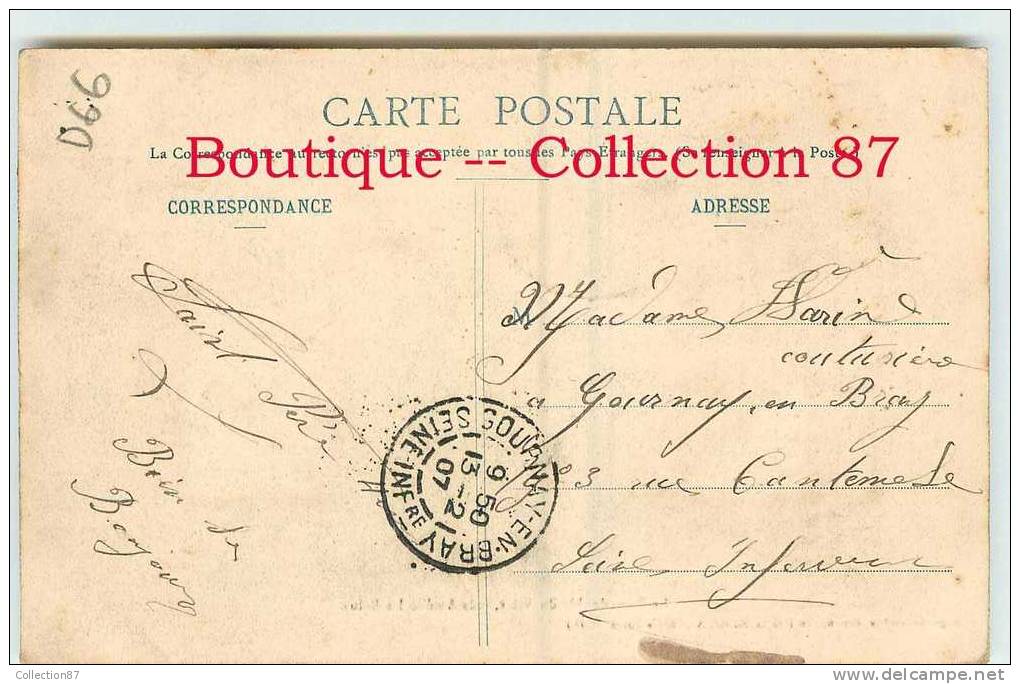 D66
CARTE POSTALE
La Correspondance au recto n'est pas acceptée par tous les Pays Étrangers (Se renseigner à la Poste)
Boutique -- Collection 87
CORRESPONDANCE
ADRESSE
Bien de
Bonjours
Madame Darin
couturière
a Gournay en Bray
N° 3 rue Cantemele
Seine Inferieure
GOURNAY-EN-BRAY
SEINE-INFRE
9 50
13 - 2
07
Collection87
delcampe.net